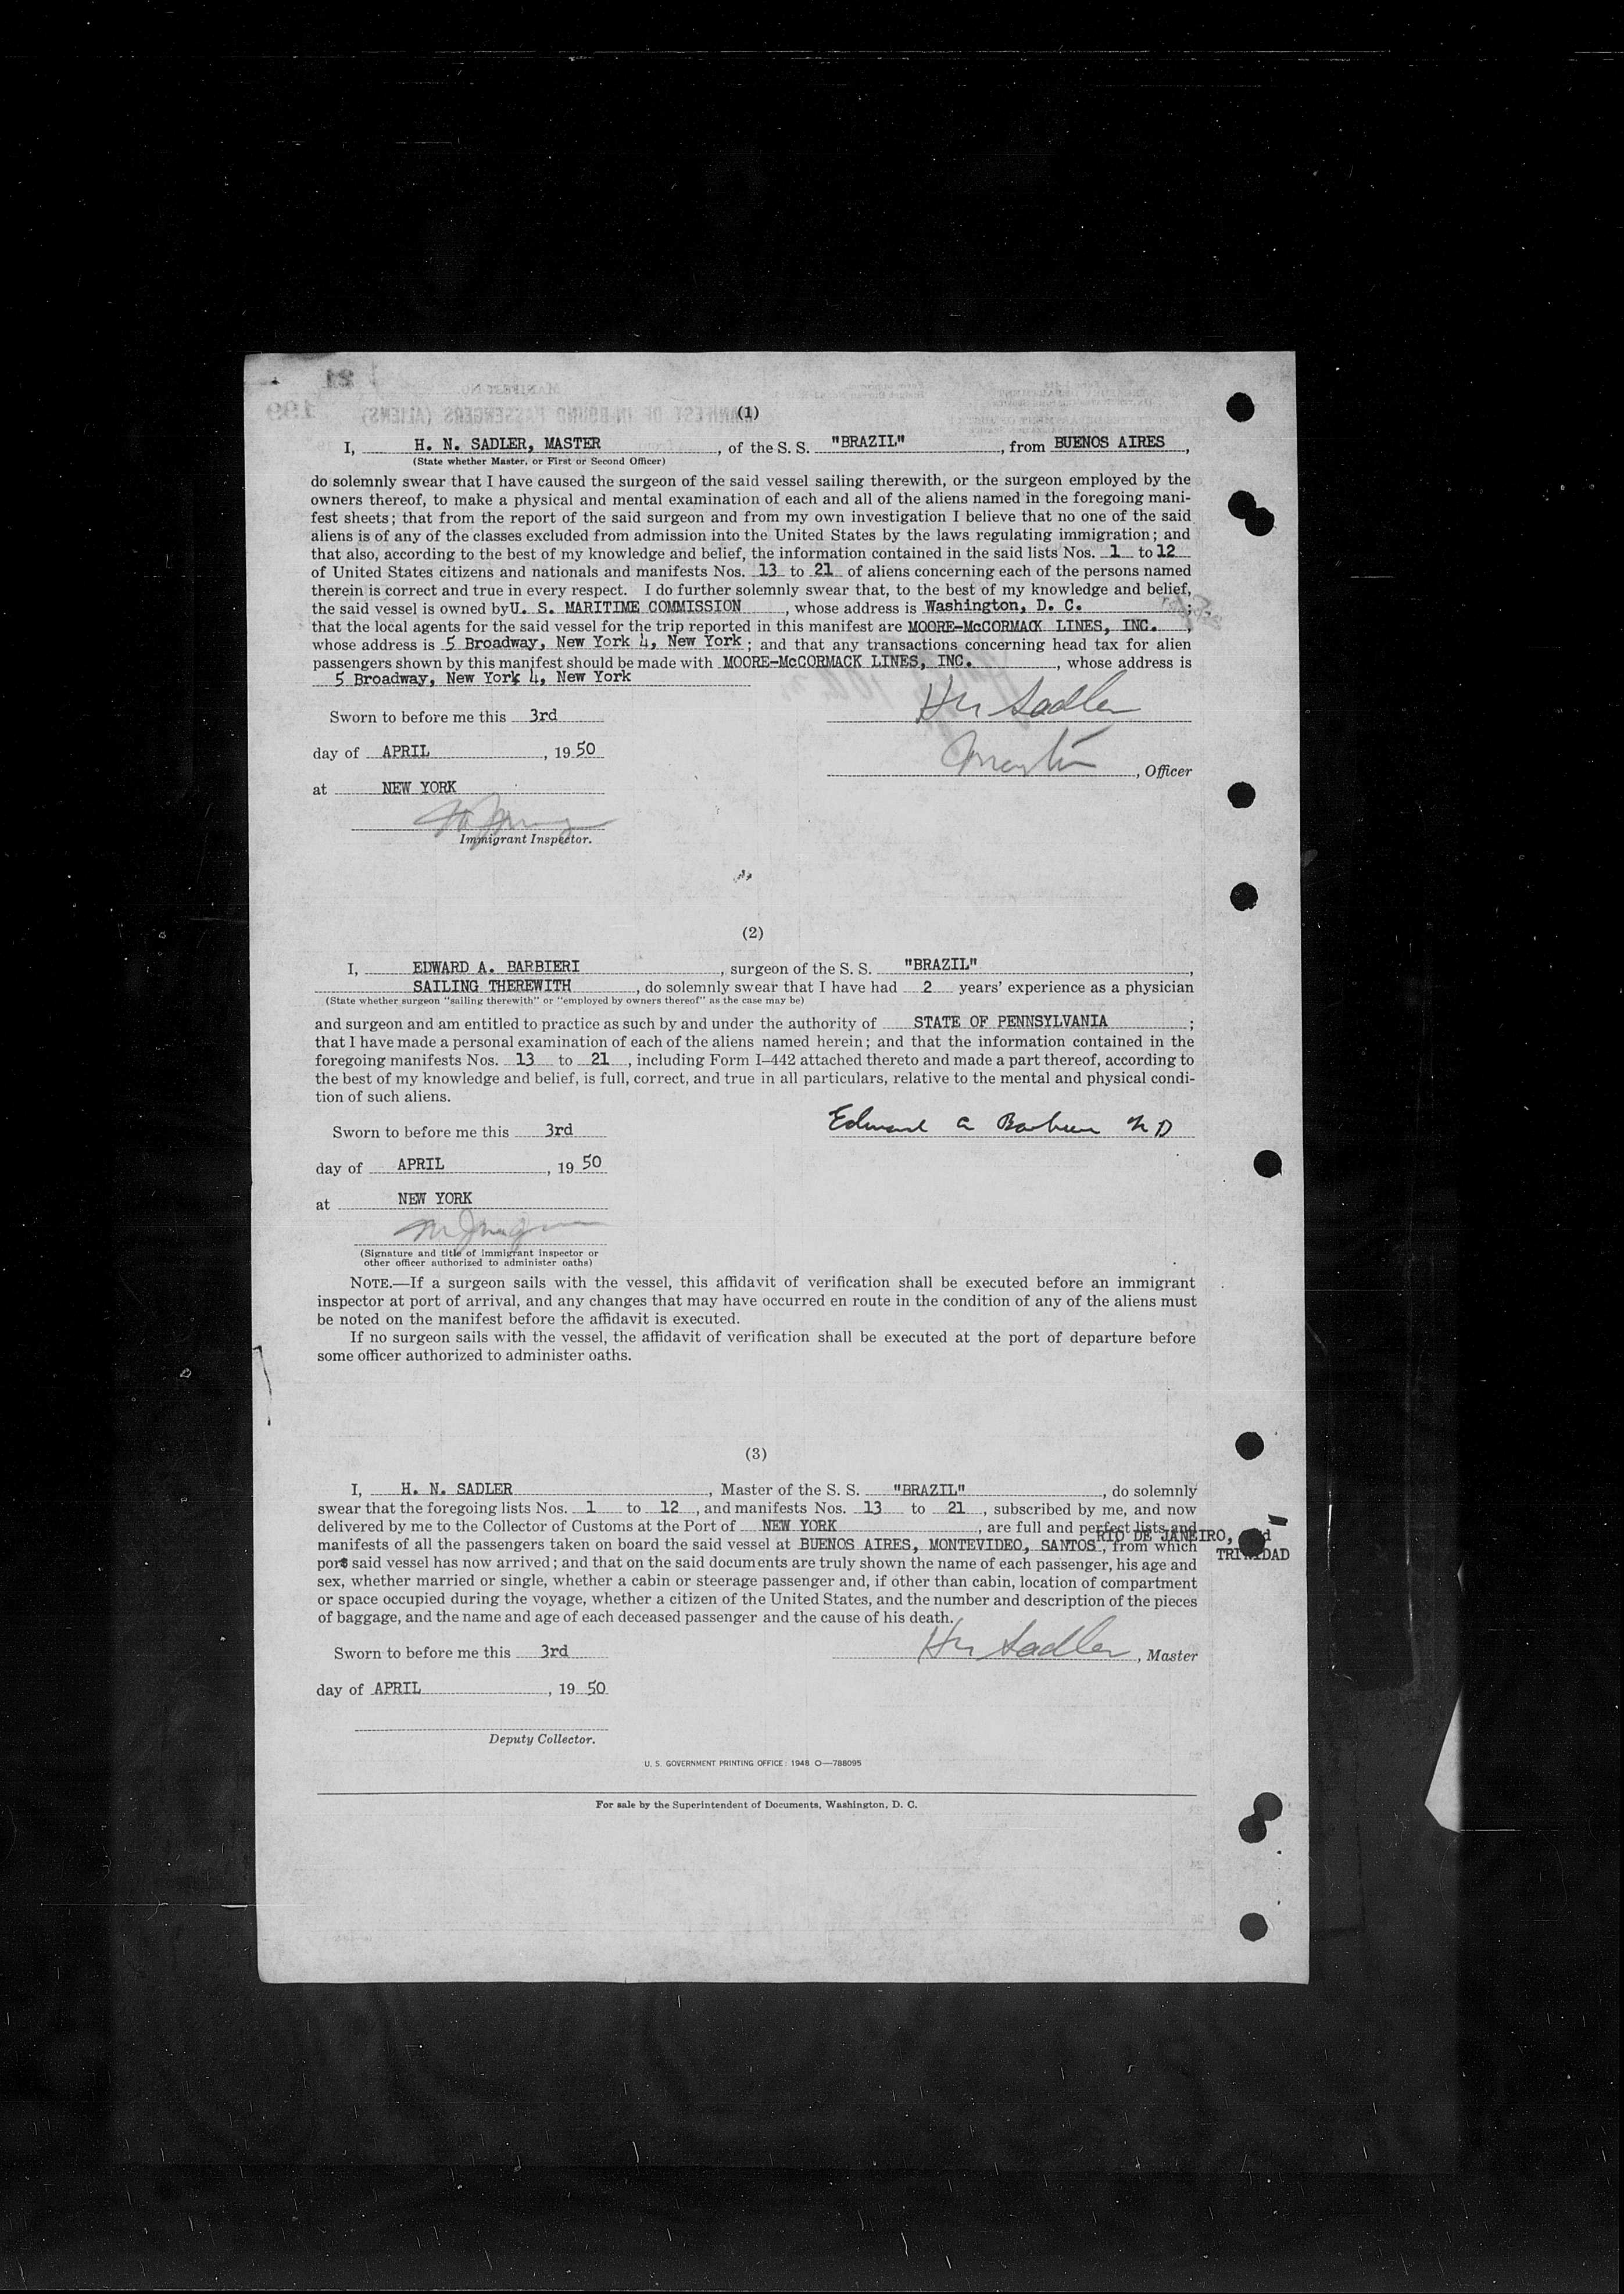 (1)
I, H. N. SADLER, MASTER, of the S. S. "BRAZIL", from BUENOS AIRES,
(State whether Master, or First or Second Officer)
do solemnly swear that I have caused the surgeon of the said vessel sailing therewith, or the surgeon employed by the
owners thereof, to make a physical and mental examination of each and all of the aliens named in the foregoing mani-
fest sheets; that from the report of the said surgeon and from my own investigation I believe that no one of the said
aliens is of any of the classes excluded from admission into the United States by the laws regulating immigration; and
that also, according to the best of my knowledge and belief, the information contained in the said lists Nos. 1 to 12
of United States citizens and nationals and manifests Nos. 13 to 21 of aliens concerning each of the persons named
therein is correct and true in every respect. I do further solemnly swear that, to the best of my knowledge and belief,
the said vessel is owned by U. S. MARITIME COMMISSION, whose address is Washington, D. C. ;
that the local agents for the said vessel for the trip reported in this manifest are MOORE-McCORMACK LINES, INC. ,
whose address is 5 Broadway, New York 4, New York ; and that any transactions concerning head tax for alien
passengers shown by this manifest should be made with MOORE-McCORMACK LINES, INC. , whose address is
5 Broadway, New York 4, New York
H N Sadler
Sworn to before me this 3rd
day of APRIL, 19 50
Master, Officer
at NEW YORK
Immigrant Inspector.
(2)
I, EDWARD A. BARBIERI, surgeon of the S. S. "BRAZIL",
SAILING THEREWITH, do solemnly swear that I have had 2 years' experience as a physician
(State whether surgeon "sailing therewith" or "employed by owners thereof" as the case may be)
and surgeon and am entitled to practice as such by and under the authority of STATE OF PENNSYLVANIA ;
that I have made a personal examination of each of the aliens named herein; and that the information contained in the
foregoing manifests Nos. 13 to 21, including Form I-442 attached thereto and made a part thereof, according to
the best of my knowledge and belief, is full, correct, and true in all particulars, relative to the mental and physical condi-
tion of such aliens.
Edward A Barbieri MD
Sworn to before me this 3rd
day of APRIL, 19 50
at NEW YORK
(Signature and title of immigrant inspector or
other officer authorized to administer oaths)
NOTE.—If a surgeon sails with the vessel, this affidavit of verification shall be executed before an immigrant
inspector at port of arrival, and any changes that may have occurred en route in the condition of any of the aliens must
be noted on the manifest before the affidavit is executed.
If no surgeon sails with the vessel, the affidavit of verification shall be executed at the port of departure before
some officer authorized to administer oaths.
(3)
I, H. N. SADLER, Master of the S. S. "BRAZIL", do solemnly
swear that the foregoing lists Nos. 1 to 12, and manifests Nos. 13 to 21, subscribed by me, and now
delivered by me to the Collector of Customs at the Port of NEW YORK, are full and perfect lists and
RIO DE JANEIRO, and
manifests of all the passengers taken on board the said vessel at BUENOS AIRES, MONTEVIDEO, SANTOS, from which
TRINIDAD
ports said vessel has now arrived; and that on the said documents are truly shown the name of each passenger, his age and
sex, whether married or single, whether a cabin or steerage passenger and, if other than cabin, location of compartment
or space occupied during the voyage, whether a citizen of the United States, and the number and description of the pieces
of baggage, and the name and age of each deceased passenger and the cause of his death.
H N Sadler, Master
Sworn to before me this 3rd
day of APRIL, 19 50
Deputy Collector.
U. S. GOVERNMENT PRINTING OFFICE: 1948 O—788095
For sale by the Superintendent of Documents, Washington, D. C.